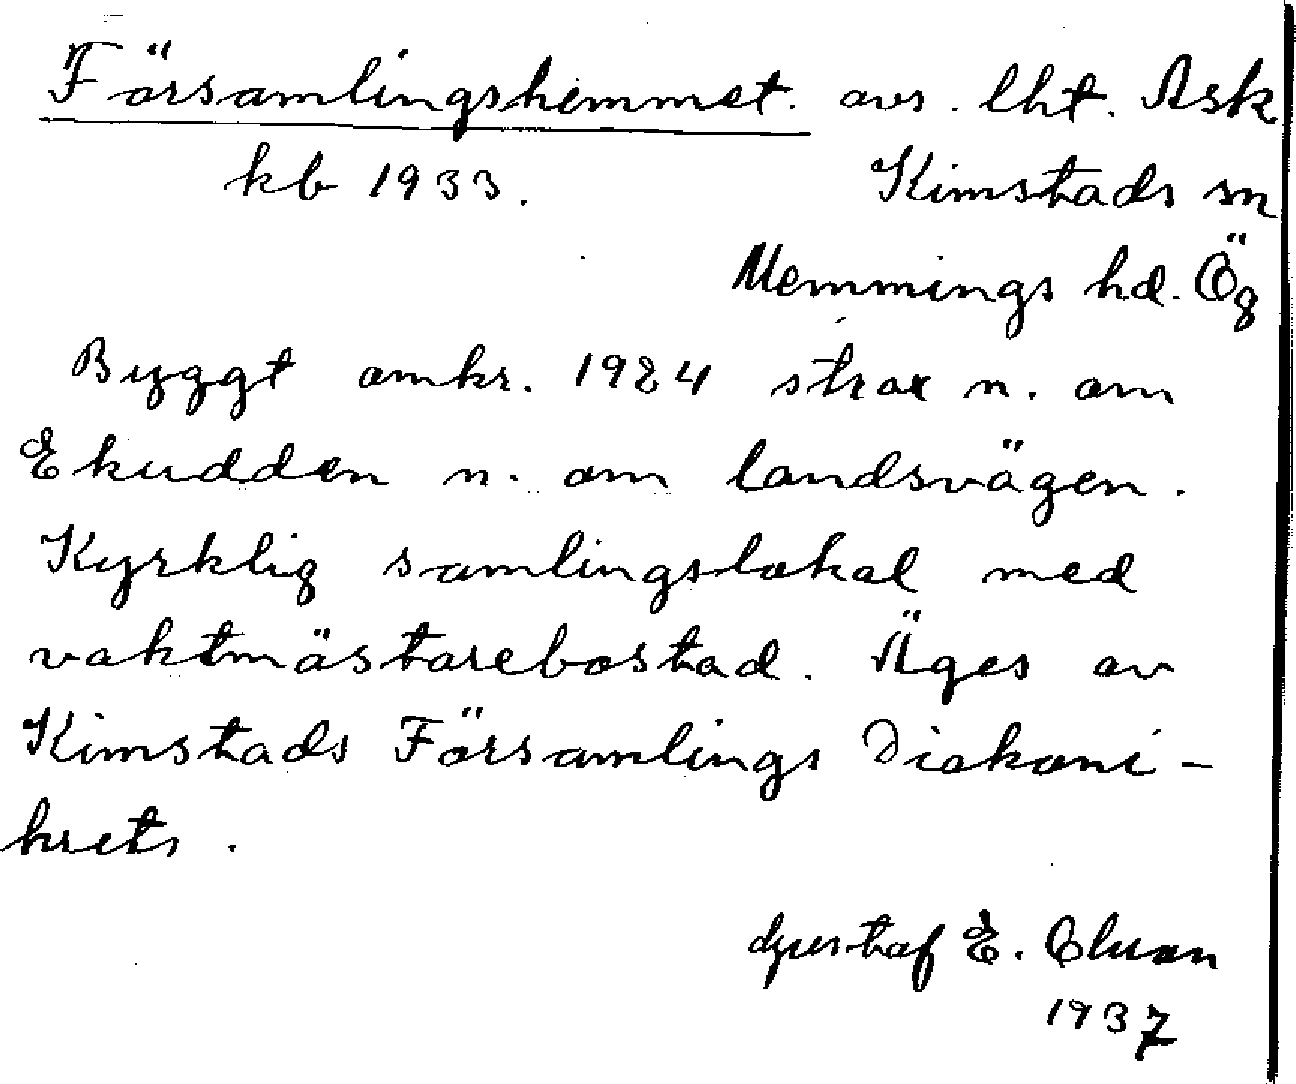 Församlingshemmet. avs. lht. Ask
kb 1933. Kimstads sn
Memmings hd. Ög
Byggt omkr. 1924 strax n. om
Ekudden n. om landsvägen.
Kyrklig samlingslokal med
vaktmästarebostad. Äges av
Kimstads Församlings Diakoni-
krets.
Gustaf E.
1937